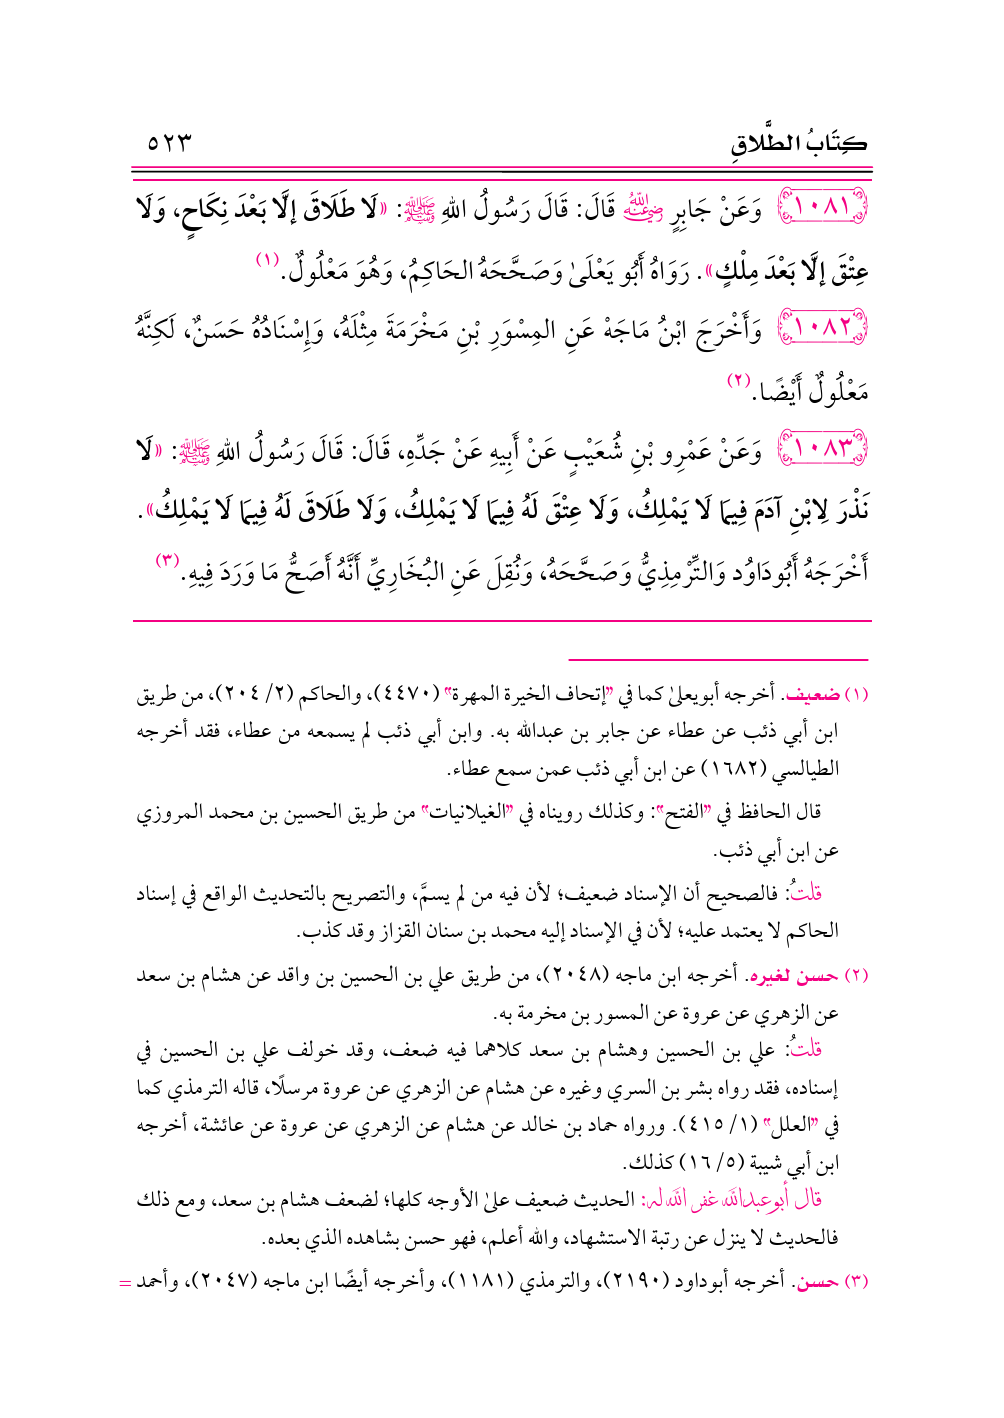 كِتَابُ الطَّلَاقِ ٥٢٣
١٠٨١ وَعَنْ جَابِرٍ رضي الله عنه قَالَ: قَالَ رَسُولُ اللهِ ﷺ: «لَا طَلَاقَ إلَّا بَعْدَ نِكَاحٍ، وَلَا
عِتْقَ إلَّا بَعْدَ مِلْكٍ». رَوَاهُ أَبُو يَعْلَىٰ وَصَحَّحَهُ الحَاكِمُ، وَهُوَ مَعْلُولٌ.(١)
١٠٨٢ وَأَخْرَجَ ابْنُ مَاجَهْ عَنِ المِسْوَرِ بْنِ مَخْرَمَةَ مِثْلَهُ، وَإِسْنَادُهُ حَسَنٌ، لَكِنَّهُ
مَعْلُولٌ أَيْضًا.(٢)
١٠٨٣ وَعَنْ عَمْرِو بْنِ شُعَيْبٍ عَنْ أَبِيهِ عَنْ جَدِّهِ، قَالَ: قَالَ رَسُولُ اللهِ ﷺ: «لَا
نَذْرَ لِابْنِ آدَمَ فِيمَا لَا يَمْلِكُ، وَلَا عِتْقَ لَهُ فِيمَا لَا يَمْلِكُ، وَلَا طَلَاقَ لَهُ فِيمَا لَا يَمْلِكُ».
أَخْرَجَهُ أَبُودَاوُد وَالتِّرْمِذِيُّ وَصَحَّحَهُ، وَنُقِلَ عَنِ البُخَارِيِّ أَنَّهُ أَصَحُّ مَا وَرَدَ فِيهِ.(٣)
(١) ضعيف. أخرجه أبويعلىٰ كما في "إتحاف الخيرة المهرة" (٤٤٧٠)، والحاكم (٢/ ٢٠٤)، من طريق
ابن أبي ذئب عن عطاء عن جابر بن عبدالله به. وابن أبي ذئب لم يسمعه من عطاء، فقد أخرجه
الطيالسي (١٦٨٢) عن ابن أبي ذئب عمن سمع عطاء.
قال الحافظ في "الفتح": وكذلك رويناه في "الغيلانيات" من طريق الحسين بن محمد المروزي
عن ابن أبي ذئب.
قلتُ: فالصحيح أن الإسناد ضعيف؛ لأن فيه من لم يسمَّ، والتصريح بالتحديث الواقع في إسناد
الحاكم لا يعتمد عليه؛ لأن في الإسناد إليه محمد بن سنان القزاز وقد كذب.
(٢) حسن لغيره. أخرجه ابن ماجه (٢٠٤٨)، من طريق علي بن الحسين بن واقد عن هشام بن سعد
عن الزهري عن عروة عن المسور بن مخرمة به.
قلتُ: علي بن الحسين وهشام بن سعد كلاهما فيه ضعف، وقد خولف علي بن الحسين في
إسناده، فقد رواه بشر بن السري وغيره عن هشام عن الزهري عن عروة مرسلًا، قاله الترمذي كما
في "العلل" (١/ ٤١٥). ورواه حماد بن خالد عن هشام عن الزهري عن عروة عن عائشة، أخرجه
ابن أبي شيبة (٥/ ١٦) كذلك.
قال أبوعبدالله غفر الله له: الحديث ضعيف علىٰ الأوجه كلها؛ لضعف هشام بن سعد، ومع ذلك
فالحديث لا ينزل عن رتبة الاستشهاد، والله أعلم، فهو حسن بشاهده الذي بعده.
(٣) حسن. أخرجه أبوداود (٢١٩٠)، والترمذي (١١٨١)، وأخرجه أيضًا ابن ماجه (٢٠٤٧)، وأحمد =